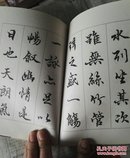 水列坐其次
雖無絲竹管
弦之盛一觴
一詠亦足以
暢敘幽情是
日也天朗氣